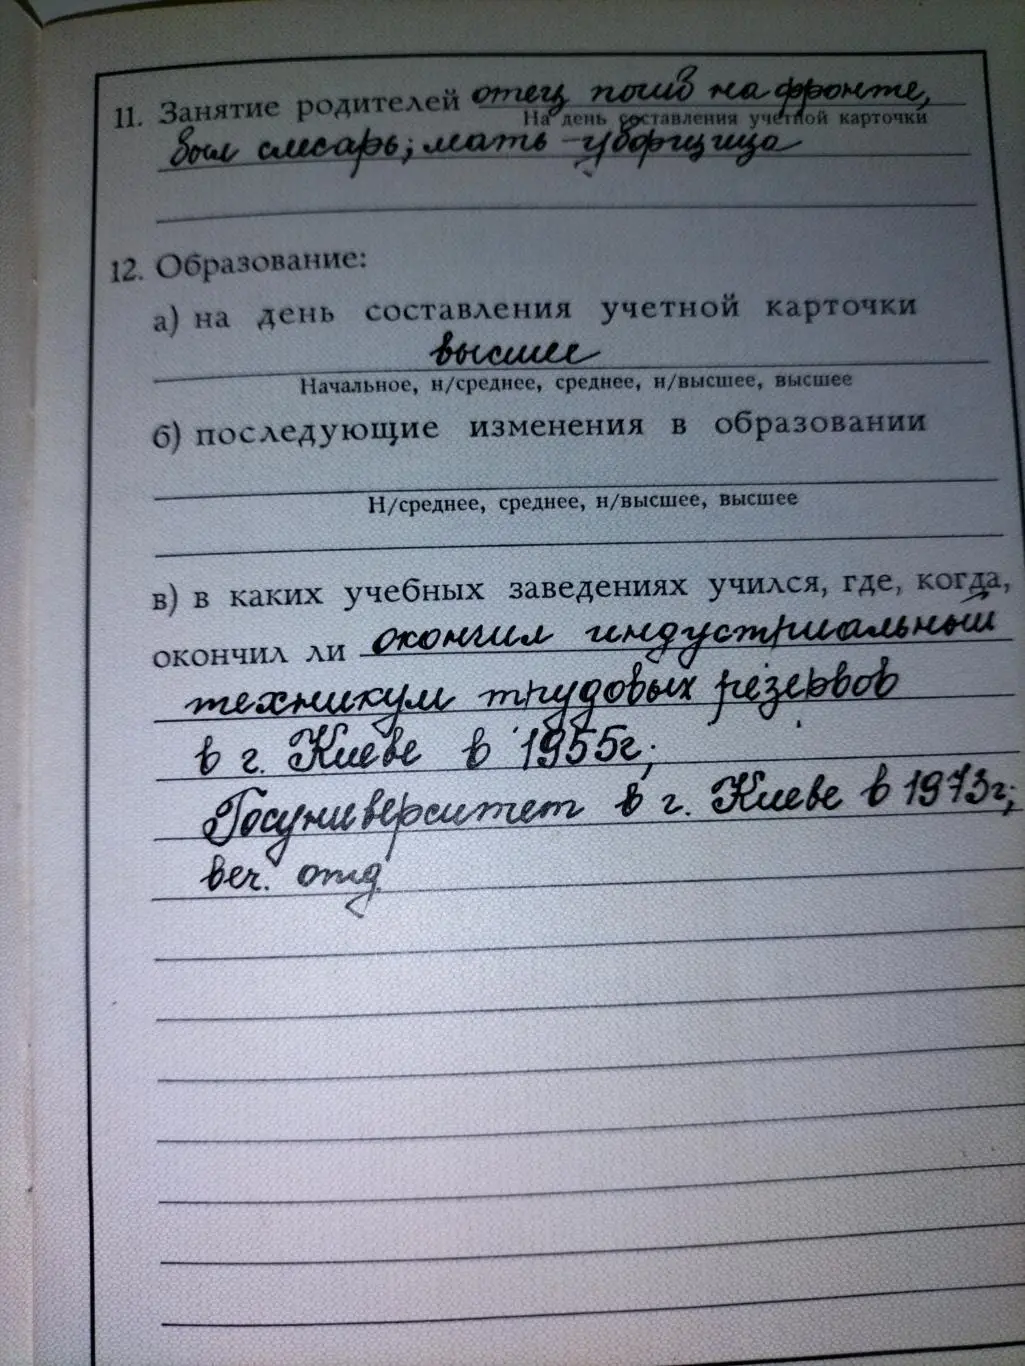 11. Занятие родителей отец погиб на фронте,
На день составления учетной карточки
был слесарь; мать уборщица
12. Образование:
а) на день составления учетной карточки
высшее
Начальное, н/среднее, среднее, н/высшее, высшее
б) последующие изменения в образовании
Н/среднее, среднее, н/высшее, высшее
в) в каких учебных заведениях учился, где, когда,
окончил ли окончил индустриальный
техникум трудовых резервов
в г. Киеве в 1955г;
Госуниверситет в г. Киеве в 1973г;
веч. отд.